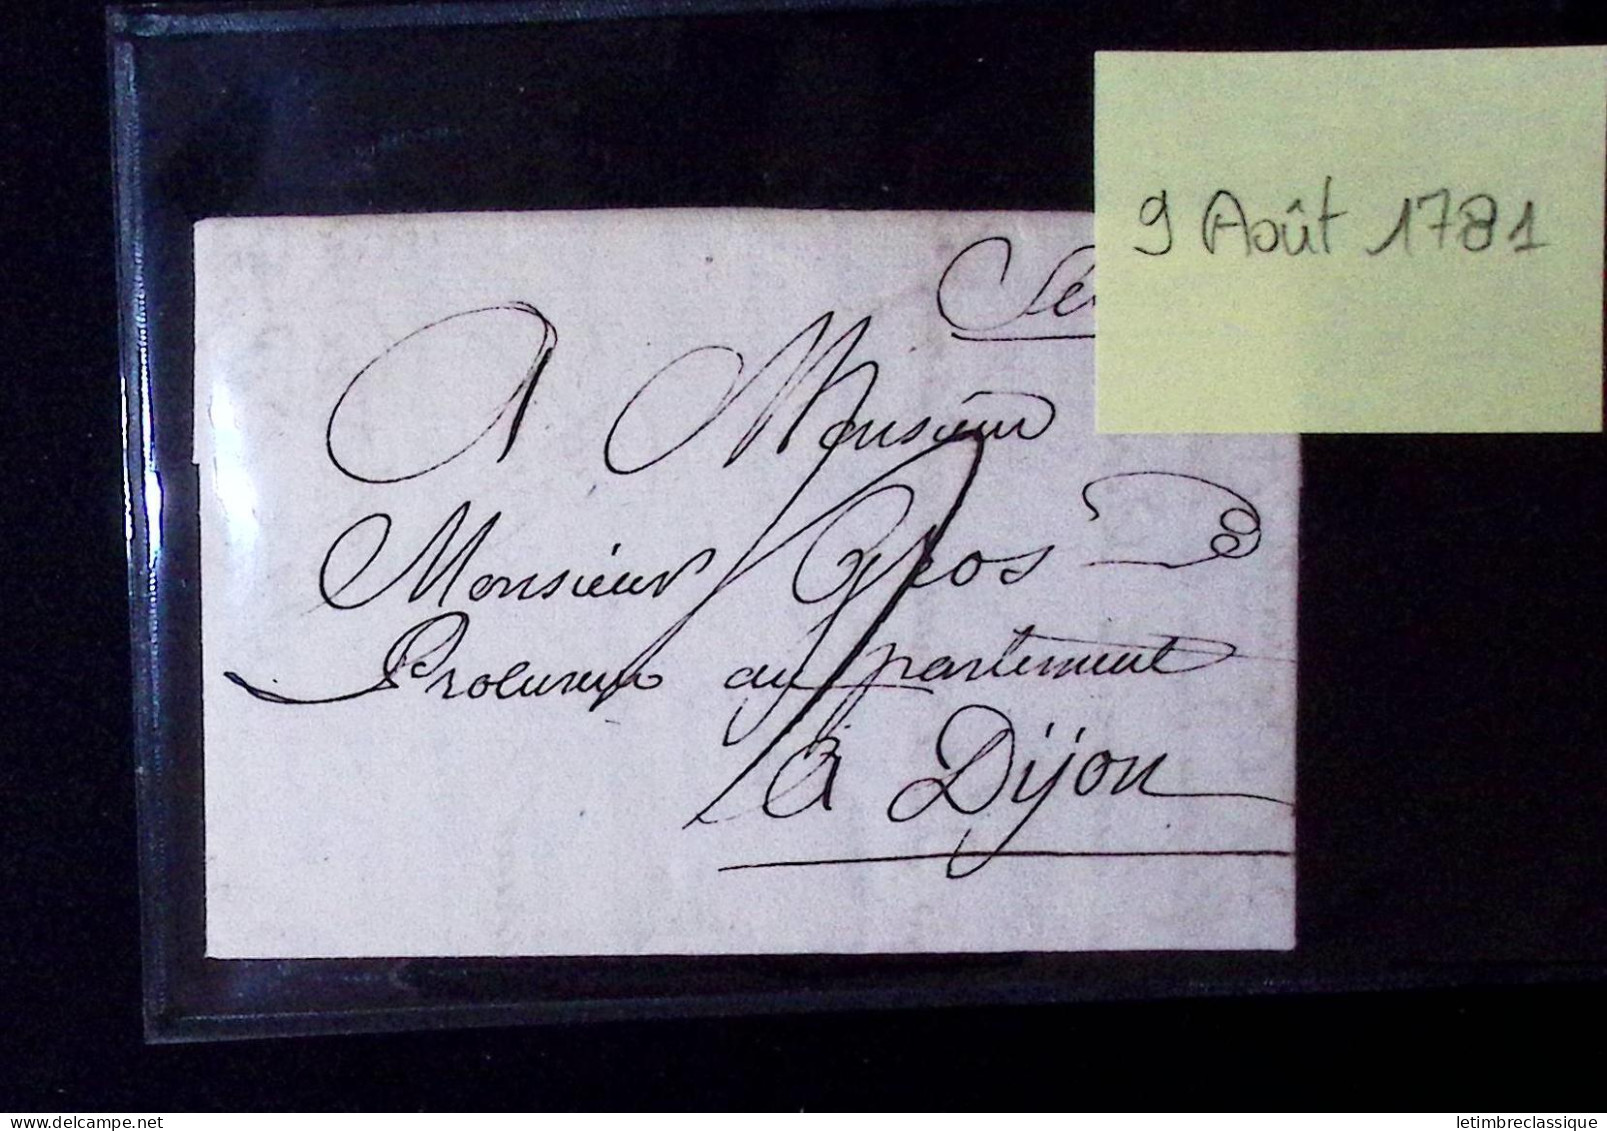 9 Août 1781
A Monsieur
Monsieur Gros
Procureur au partement
à Dijon
letimbreclassique